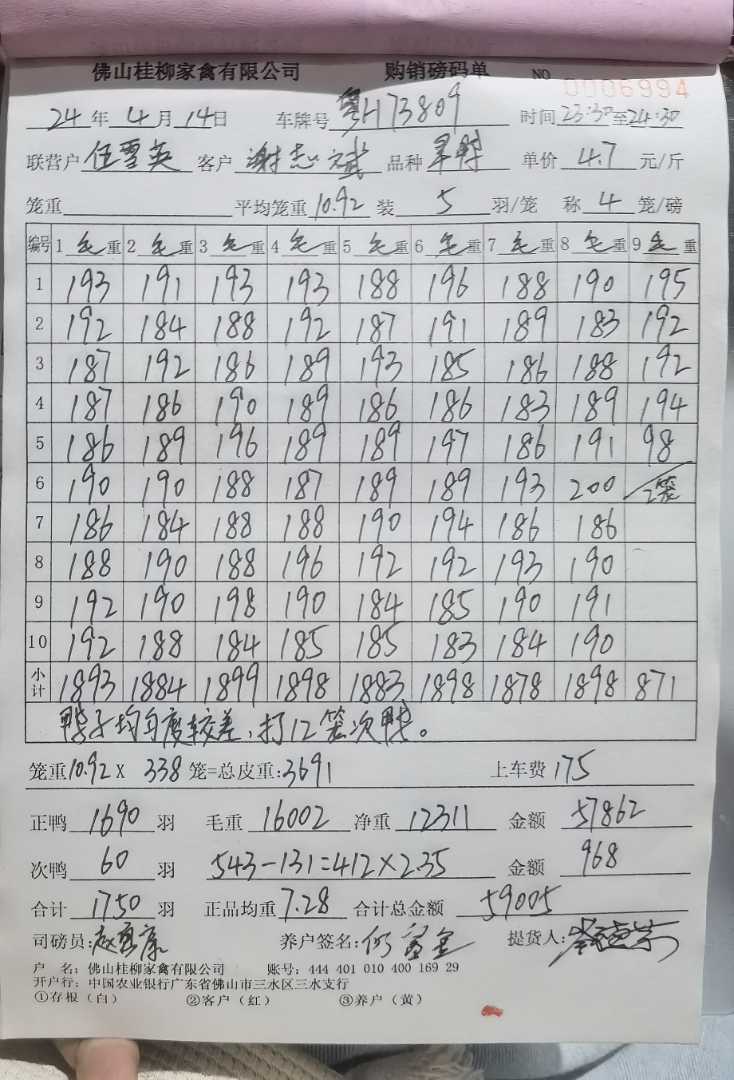 佛山桂柳家禽有限公司 购销磅码单 NO 0006994
24年4月14日 车牌号 粤H73809 时间23:30至24:30
联营户 伍雪英 客户 谢志斌 品种 单价 4.7 元/斤
笼重 平均笼重10.92 装 5 羽/笼 称 4 笼/磅
编号 1毛重 2毛重 3毛重 4毛重 5毛重 6毛重 7毛重 8毛重 9毛重
1 193 191 193 193 188 196 188 190 195
2 192 184 188 192 187 191 189 183 192
3 187 192 186 189 193 185 186 188 192
4 187 186 190 189 186 186 183 189 194
5 186 189 196 189 189 197 186 191 98
6 190 190 188 187 189 189 193 200 2笼
7 186 184 188 188 190 194 186 186
8 188 190 188 196 192 192 193 190
9 192 190 198 190 184 185 190 191
10 192 188 184 185 185 183 184 190
小计 1893 1884 1899 1898 1883 1898 1878 1898 871
鸭子均匀度较差，打12笼次鸭。
笼重10.92X 338笼=总皮重:3691 上车费175
正鸭 1690 羽 毛重 16002 净重 12311 金额 57862
次鸭 60 羽 543-131=412×2.35 金额 968
合计 1750 羽 正品均重7.28 合计总金额 59005
司磅员: 养户签名: 提货人:
户 名：佛山桂柳家禽有限公司 账号：444 401 010 400 169 29
开户行：中国农业银行广东省佛山市三水区三水支行
①存根（白） ②客户（红） ③养户（黄）